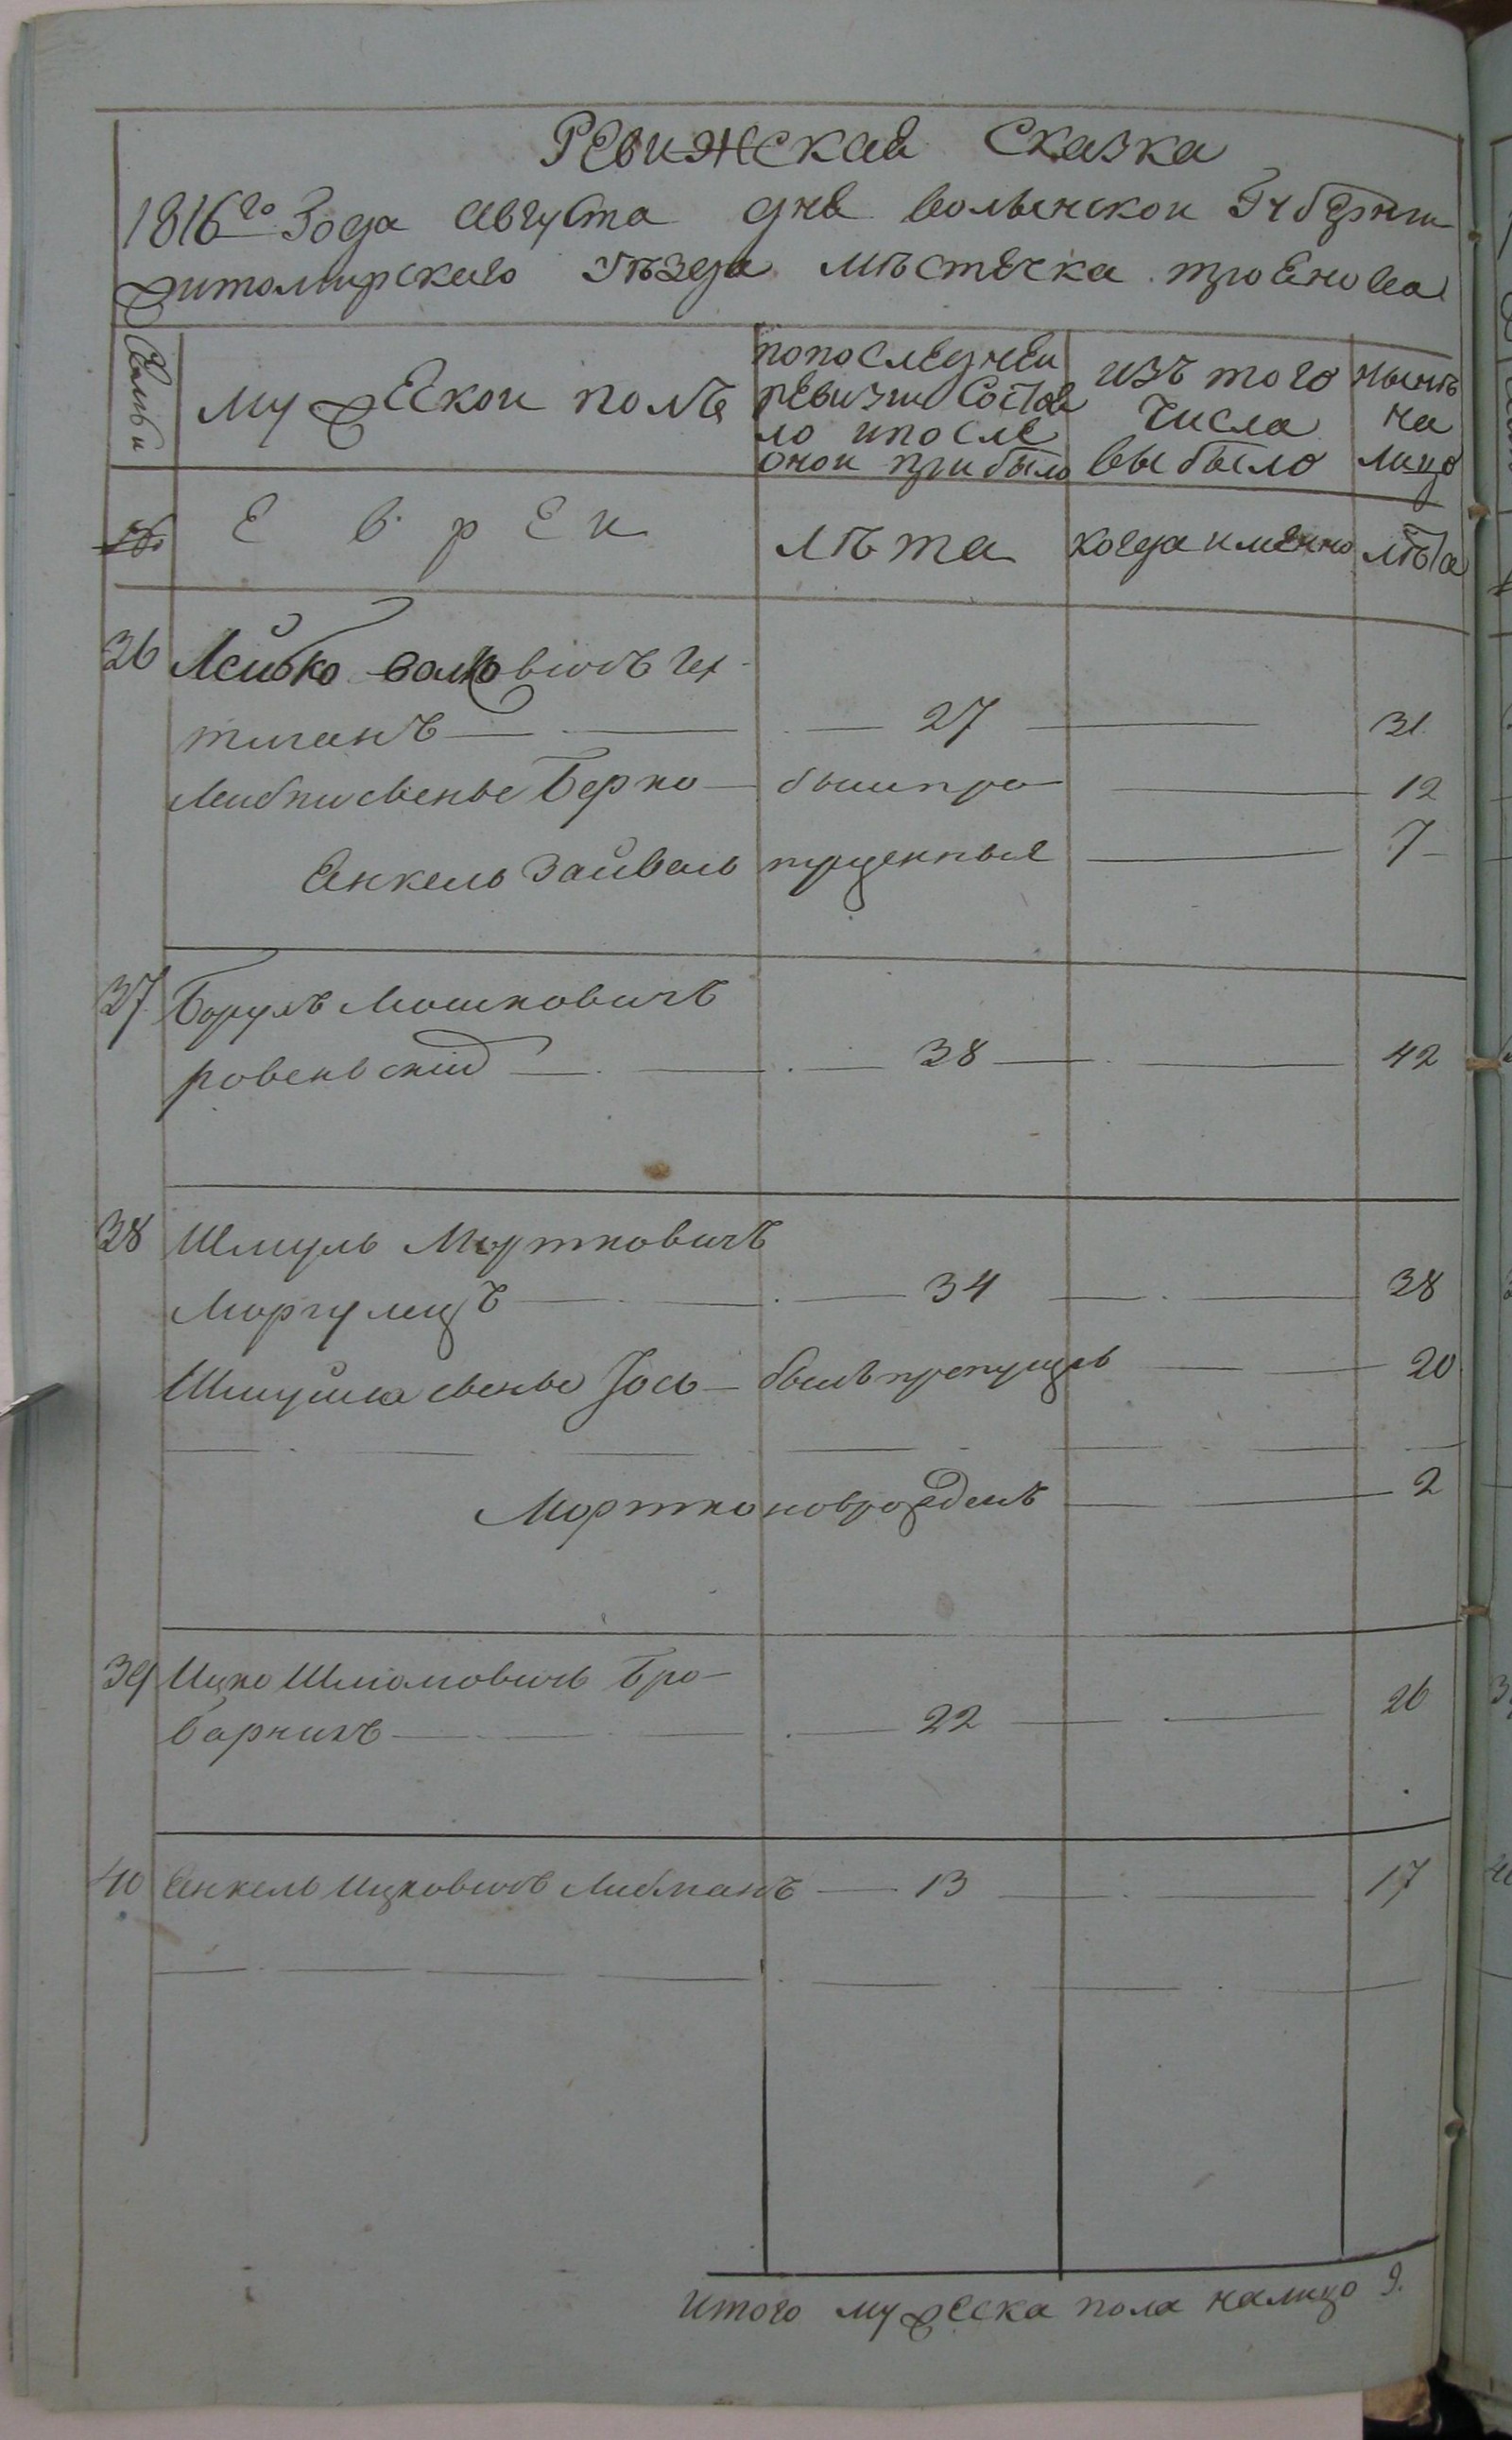 Ревижская Сказка
1816го года августа дня волынской Губернии
житомирского уезда местечка троенова
Семьи
мужеской полъ
попоследней
ревизии Состоя
ло ипосле
оной прибыло
изъ того
числа
выбыло
ныне
на
лицо
№
Евреи
лѣта
когда именно
лѣта
36 Лейбко волковичъ
27 31
Лейбки сынье Берко быи про 12
Енкель Зайвель пущенные 7
37 Борухъ Мошковичъ
ровеньский 38 42
38 Шмуль Мортковичъ
Моргулецъ 34 38
Шмуйла сынье Іось былъ пропущенъ 20
Мортко новорожденъ 2
39 Ицко Шломовичъ Бро-
варникъ 22 26
40 Енкель Ицковичъ Либманъ 13 17
Итого мужеска пола налицо 9.